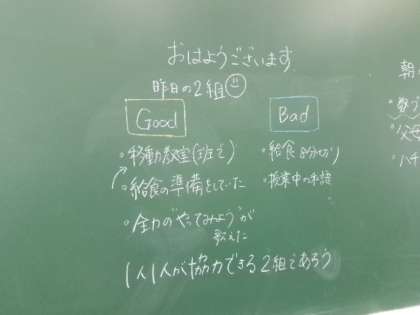 おはようございます
昨日の2組
Good
Bad
・移動教室(班で)
・給食の準備をしていた
・全力の"やってみよう"が
歌えた
・給食 8分
・授業中の私語
1人1人が協力できる2組であろう
朝